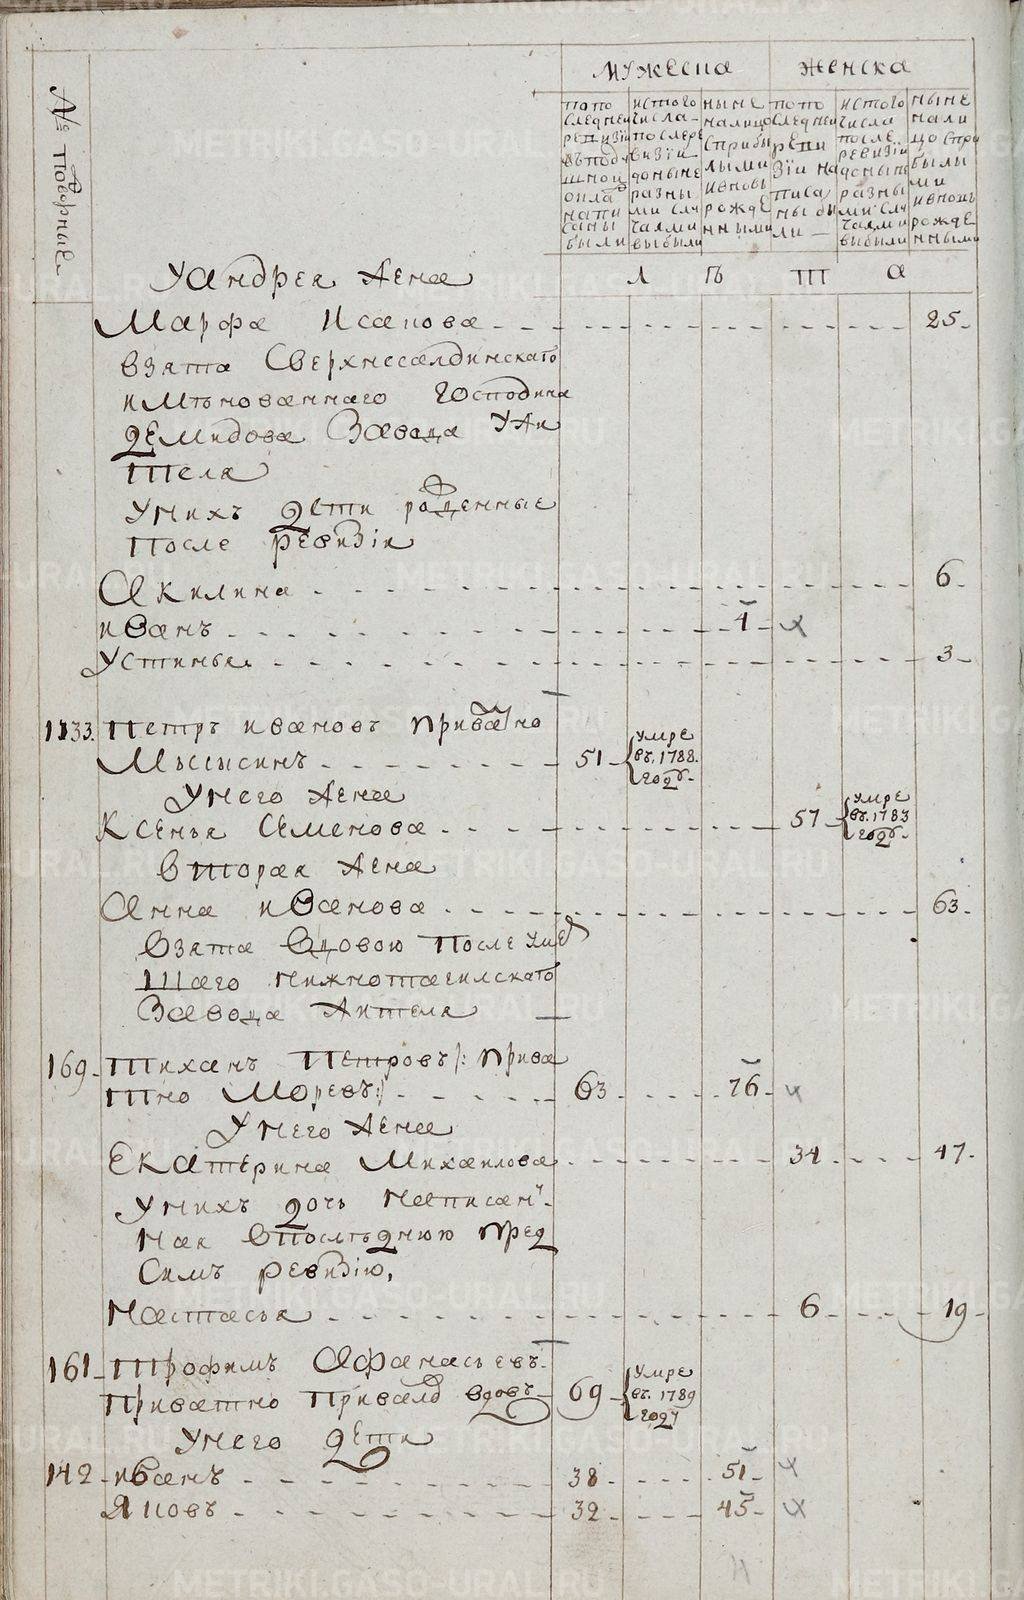 № подворные
Мужеска Женска
по по
следней
ревизіи
въ подушной
оплат
напи
саны
были
истого
числа
после ре
визіи
доныне
разны
ми слу
чаями
выбыли
ныне
налицо
сприбы
лыми
ивновь
рожде
нными
по по
следней
реви
зіи на
писа
ны бы
ли
истого
числа
после
ревизіи
доныне
разны
ми слу
чаями
выбыли
ныне
нали
цо спри
былы
ми
ивновь
рожде
нными
л ѣ т а
У андрея жена
Марфа Исакова 25
взята Сверхнесалдинскаго
имѣнованнаго Господина
демидова Завода У жи
теля
У них дети рожденные
после ревизіи
Акилина 6
иванъ 4
Устинья 3
1133. Петръ ивановъ приватно
Мысисинъ 51 умре въ 1788 годʋ
У него жена
Ксенья Семенова 57 умре въ 1783 годʋ
вторая жена
Анна иванова 63
Взята вдовою после умер
шаго нижнотагилскаго
Завода жителя
169 Тиханъ Петровъ /: прива
тно Моревъ :/ 63 76
У него жена
Екатерина Михаилова 34 47
У нихъ дочь написан
ная впоследнюю пред
симъ ревизію,
Настасья 6 19
161 Трофимъ Афанасьевъ
Приватно Привалъ вдовъ 69 умре въ 1789 годʋ
У него дети
142 иванъ 38 51
Яковъ 32 45
METRIKI.GASO-URAL.RU